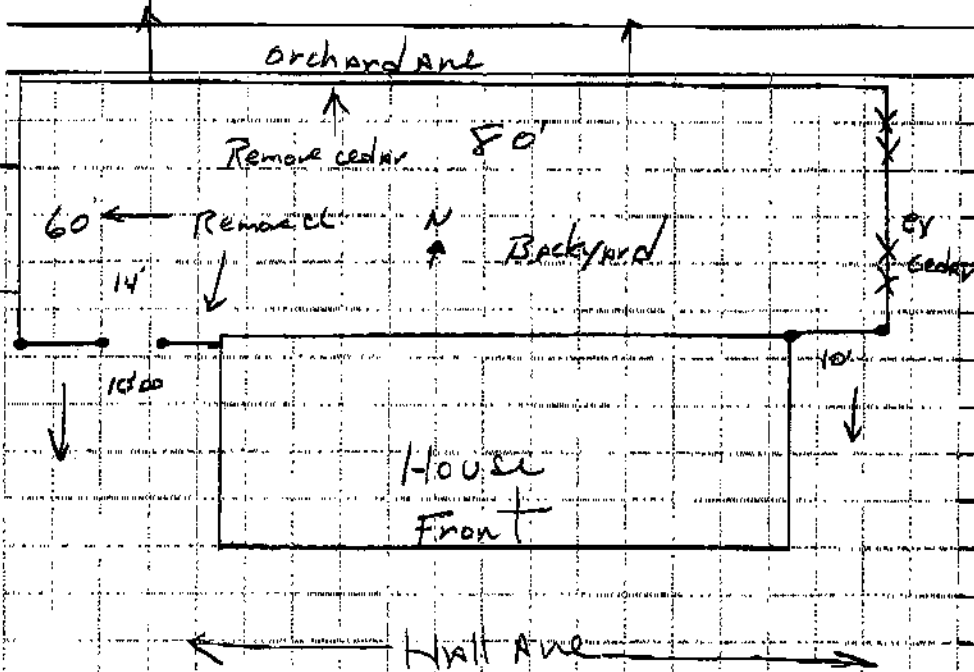 Orchard Ave
Remove cedar
80'
60'
Remove cl
N
Backyard
ex
cedar
14'
10'
House
Front
Hall Ave